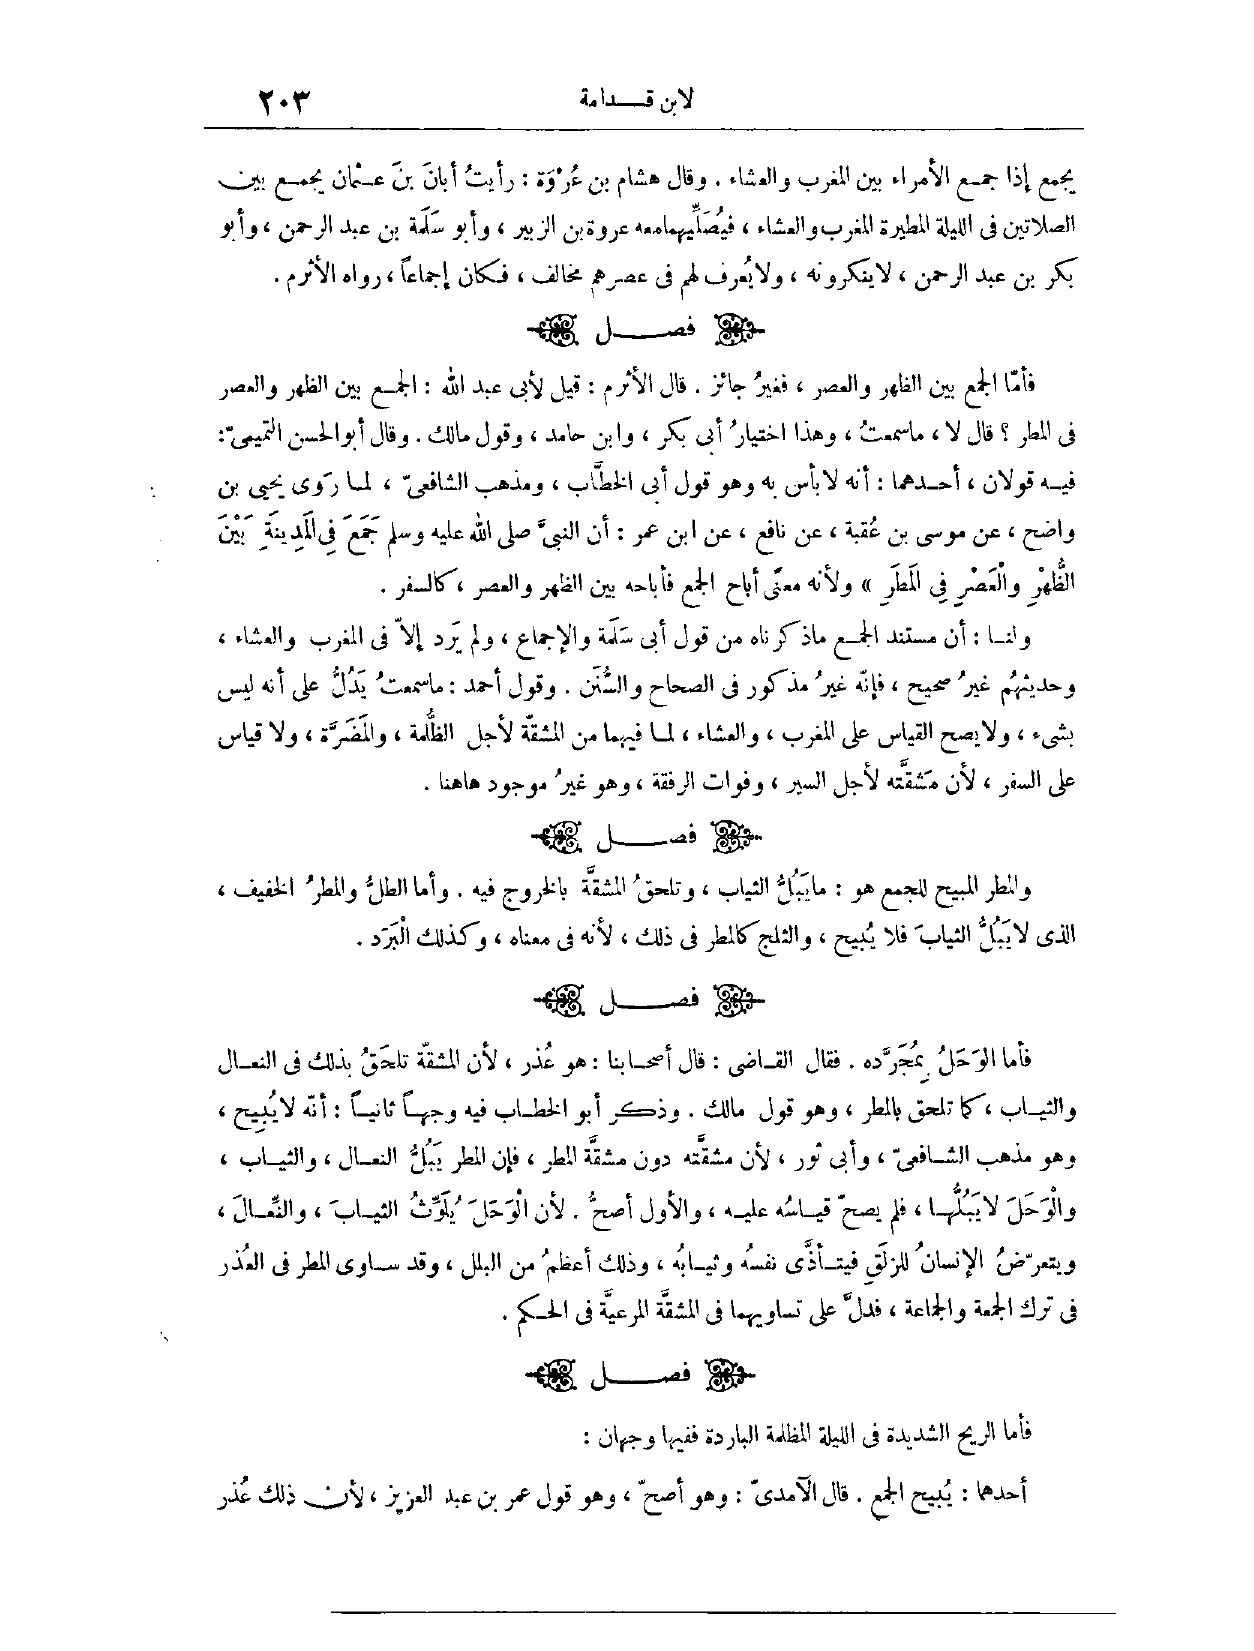 لابن قـــدامة ٢٠٣
يجمع إذا جمع الأمراء بين المغرب والعشاء . وقال هشام بن عُرْوَة : رأيتُ أبانَ بنَ عـثمان يجمـع بين
الصلاتين فى الليلة المطيرة المغرب والعشاء ، فيُصَلِّيهما معه عروة بن الزبير ، وأبو سَلَمة بن عبد الرحمن ، وأبو
بكر بن عبد الرحمن ، لاينكرونه ، ولايُعرف لهم فى عصرهم مخالف ، فكان إجماعاً ، رواه الأثرم .
فصـــل
فأمّا الجمع بين الظهر والعصر ، فغيرُ جائز . قال الأثرم : قيل لأبى عبد الله : الجمـع بين الظهر والعصر
فى المطر ؟ قال لا ، ماسمعتُ ، وهذا اختيارُ أبى بكر ، وابن حامد ، وقول مالك . وقال أبو الحسن التميمىّ :
فيـه قولان ، أحـدهما : أنه لابأس به وهو قول أبى الخطَّاب ، ومذهب الشافعىّ ، لمـا رَوى يحيى بن
واضح ، عن موسى بن عُقبة ، عن نافع ، عن ابن عمر : أن النبىَّ صلى الله عليه وسلم جَمَعَ فِى الْمَدِينَةِ بَيْنَ
الظُّهْرِ والْعَصْرِ فِى الْمَطَرِ » ولأنه معنًى أباح الجمع فأباحه بين الظهر والعصر ، كالسفر .
ولنـا : أن مستند الجمـع ماذكرناه من قول أبى سَلَمة والإجماع ، ولم يَرد إلاّ فى المغرب والعشاء ،
وحديثهُم غيرُ صحيح ، فإنّه غيرُ مذكور فى الصحاح والسُّنَن . وقول أحمد : ماسمعتُ يَدُلُّ على أنه ليس
بشىء ، ولايصح القياس على المغرب ، والعشاء ، لمـا فيهما من المشقّة لأجل الظُّلمة ، والمَضَرَّة ، ولا قياس
على السفر ، لأن مَشقَّته لأجل السير ، وفوات الرفقة ، وهو غيرُ موجود هاهنا .
فصـــل
والمطر المبيح للجمع هو : مايَبُلُّ الثياب ، وتلحقُ المشقَّة بالخروج فيه . وأما الطلُّ والمطرُ الخفيف ،
الذى لايَبُلُّ الثيابَ فلا يُبيح ، والثلج كالمطر فى ذلك ، لأنه فى معناه ، وكذلك الْبَرَد .
فصـــل
فأما الوَحَلُ بمُجَرَّدِه . فقال القـاضى : قال أصحـابنا : هو عُذر ، لأن المشقّة تلحَقُ بذلك فى النعـال
والثيـاب ، كما تلحق بالمطر ، وهو قول مالك . وذكـر أبو الخطـاب فيه وجهـاً ثانيـاً : أنّه لايُبِيح ،
وهو مذهب الشـافعىّ ، وأبى ثور ، لأن مشقَّته دون مشقَّة المطر ، فإن المطر يَبُلُّ النعـال ، والثيـاب ،
والْوَحَلَ لايَبُلُّهـا ، فلم يصحّ قيـاسُه عليـه ، والأول أصحُّ . لأن الْوَحَلَ يُلَوِّثُ الثيـابَ ، والنِّعـالَ ،
ويتعرّضُ الإنسانُ للزلَقِ فيتـأذَّى نفسُه وثيـابُه ، وذلك أعظمُ من البلل ، وقد سـاوى المطر فى العُذر
فى ترك الجمعة والجماعة ، فدلَّ على تساويهما فى المشقَّة المرعيَّة فى الحـكم .
فصـــل
فأما الريح الشديدة فى الليلة المظلمة الباردة ففيها وجهان :
أحدهما : يُبيح الجمع . قال الآمدىّ : وهو أصحّ ، وهو قول عمر بن عبد العزيز ، لأن ذلك عُذر